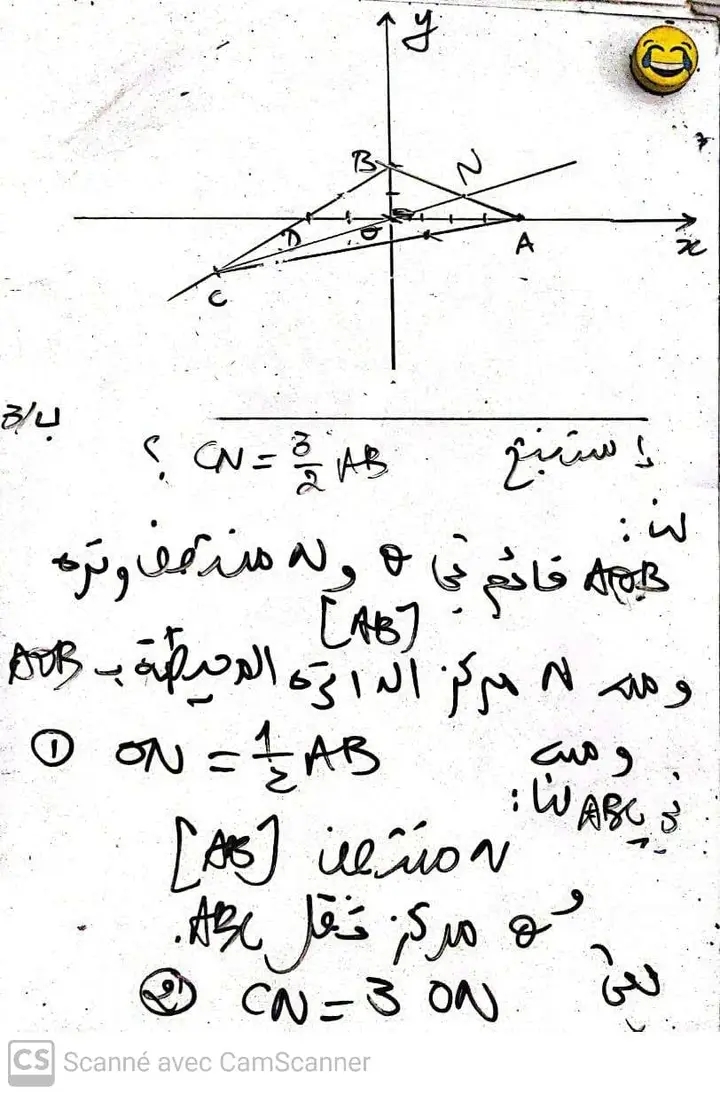 y
B
N
D
O
A
x
C
3/ب
إستنتج CN = 3/2 AB ؟
لدينا :
AOB قائم في O و N منتصف وتره
[AB]
ومنه N مركز الدائرة المحيطة بـ AOB
ومنه ON = 1/2 AB ①
في ABC لنا :
N منتصف [AB]
و O مركز ثقل ABC.
CN = 3 ON ②
CS Scanné avec CamScanner